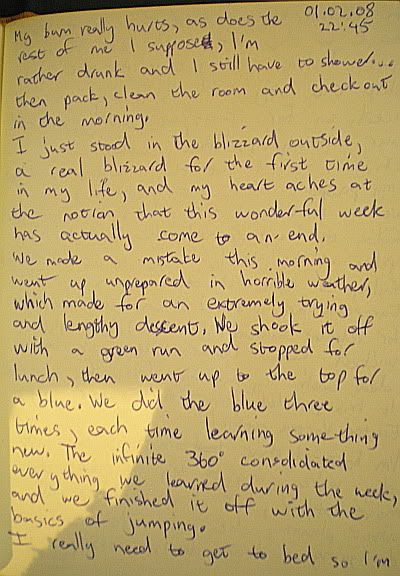 My bum really hurts, as does the
01.02.08
22:45
rest of me I suppose, I'm
rather drunk and I still have to shower...
then pack, clean the room and check out
in the morning.
I just stood in the blizzard outside,
a real blizzard for the first time
in my life, and my heart aches at
the notion that this wonderful week
has actually come to an end.
We made a mistake this morning and
went up unprepared in horrible weather,
which made for an extremely trying
and lengthy descent. We shook it off
with a green run and stopped for
lunch, then went up to the top for
a blue. We did the blue three
times, each time learning something
new. The infinite 360° consolidated
everything we learned during the week,
and we finished it off with the
basics of jumping.
I really need to get to bed so I'm